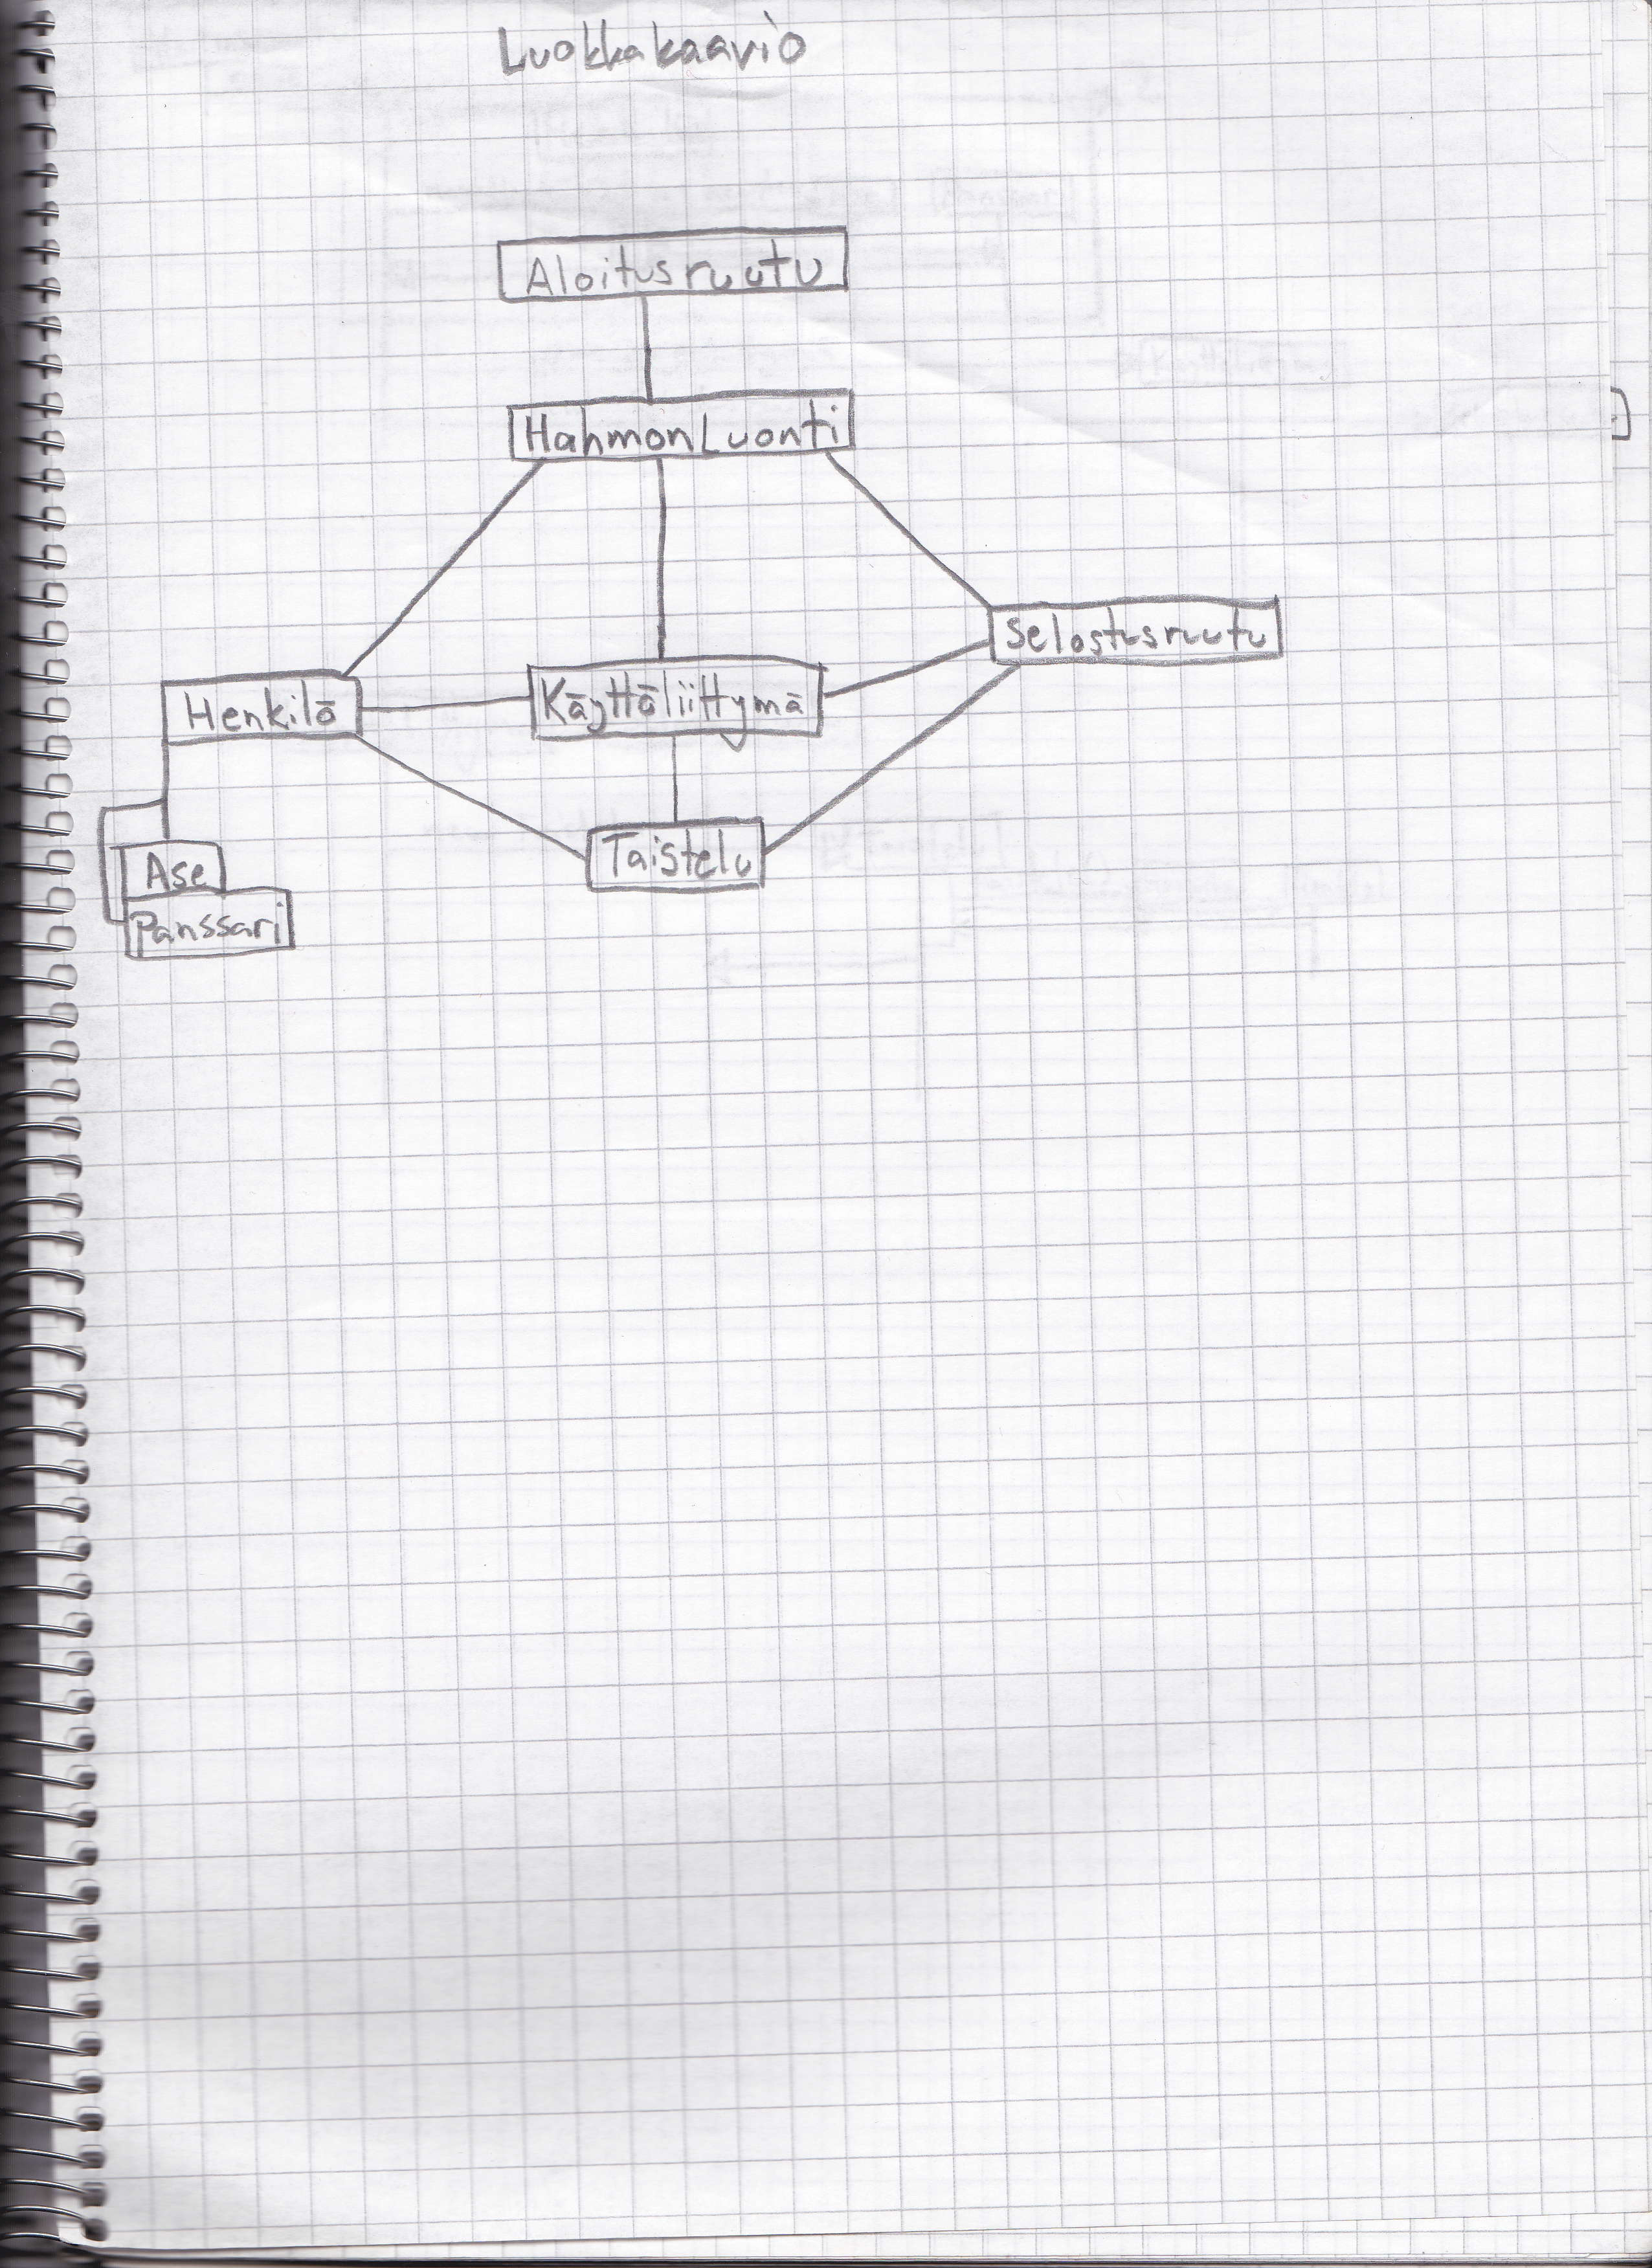 Luokkakaavio
Aloitusruutu
HahmonLuonti
Selostusruutu
Henkilö
Käyttöliittymä
Taistelu
Ase
Panssari